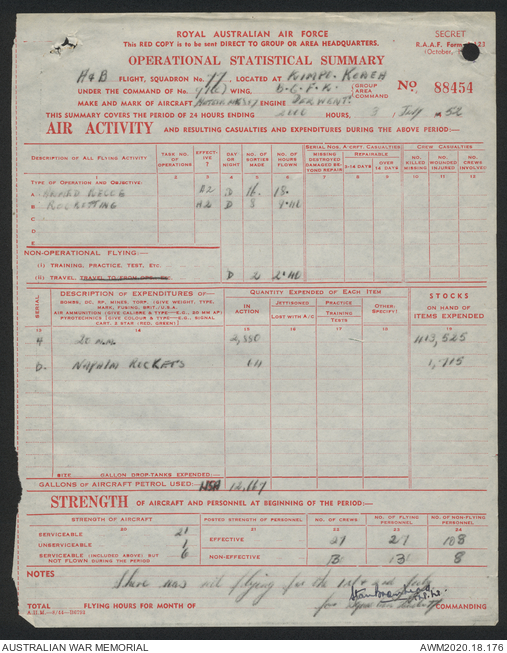 ROYAL AUSTRALIAN AIR FORCE
SECRET
This RED COPY is to be sent DIRECT TO GROUP OR AREA HEADQUARTERS.
R.A.A.F. Form
(October,
OPERATIONAL STATISTICAL SUMMARY
A & B FLIGHT, SQUADRON No. 77 LOCATED AT KIMPO. KOREA
UNDER THE COMMAND OF No. WING, GROUP AREA COMMAND No 88454
MAKE AND MARK OF AIRCRAFT ENGINE DERWENT.
THIS SUMMARY COVERS THE PERIOD OF 24 HOURS ENDING HOURS, 3 July 52
AIR ACTIVITY AND RESULTING CASUALTIES AND EXPENDITURES DURING THE ABOVE PERIOD:—
DESCRIPTION OF ALL FLYING ACTIVITY TASK NO. OF OPERATIONS EFFECTIVE ? DAY OR NIGHT NO. OF SORTIES MADE NO. OF HOURS FLOWN SERIAL NOS. A'CRFT. CASUALTIES CREW CASUALTIES
MISSING DESTROYED DAMAGED BEYOND REPAIR REPAIRABLE 2-14 DAYS OVER 14 DAYS NO. KILLED MISSING NO. WOUNDED INJURED NO. CREWS INVOLVED
2 3 4 5 6 7 8 9 10 11 12
TYPE OF OPERATION AND OBJECTIVE:
A ARMED RECCE A2 D 16 18.
B ROCKETING A2 D 8
C.
D.
E
NON-OPERATIONAL FLYING:—
(i) TRAINING, PRACTICE, TEST, ETC.
(ii) TRAVEL, D 2 2.40
SERIAL DESCRIPTION OF EXPENDITURES OF— QUANTITY EXPENDED OF EACH ITEM STOCKS
BOMBS, DC, RP, MINES, TORP. (GIVE WEIGHT, TYPE, MARK, FUSING, BRIT./U.S.A.
AIR AMMUNITION (GIVE CALIBRE & TYPE—E.G., 20 MM AP)
PYROTECHNICS (GIVE COLOUR & TYPE—E.G., SIGNAL CART. 2 STAR (RED, GREEN))
IN ACTION JETTISONED LOST WITH A/C PRACTICE TRAINING TESTS OTHER: SPECIFY) ON HAND OF ITEMS EXPENDED
13 14 15 16 17 18 19
A 20 M.M. 2,550 413,525
B. NAPALM ROCKETS
SIZE GALLON DROP-TANKS EXPENDED:—
GALLONS OF AIRCRAFT PETROL USED: 12,167
STRENGTH OF AIRCRAFT AND PERSONNEL AT BEGINNING OF THE PERIOD:—
STRENGTH OF AIRCRAFT POSTED STRENGTH OF PERSONNEL NO. OF CREWS NO. OF FLYING PERSONNEL NO. OF NON-FLYING PERSONNEL
20 21 22 23 24
SERVICEABLE 21 EFFECTIVE 27 27 108
UNSERVICEABLE 1
SERVICEABLE (INCLUDED ABOVE) BUT NOT FLOWN DURING THE PERIOD 6 NON-EFFECTIVE 13 13 8
NOTES There was nil flying for the 1st & 2nd July
TOTAL FLYING HOURS FOR MONTH OF for COMMANDING
AUSTRALIAN WAR MEMORIAL AWM2020.18.176